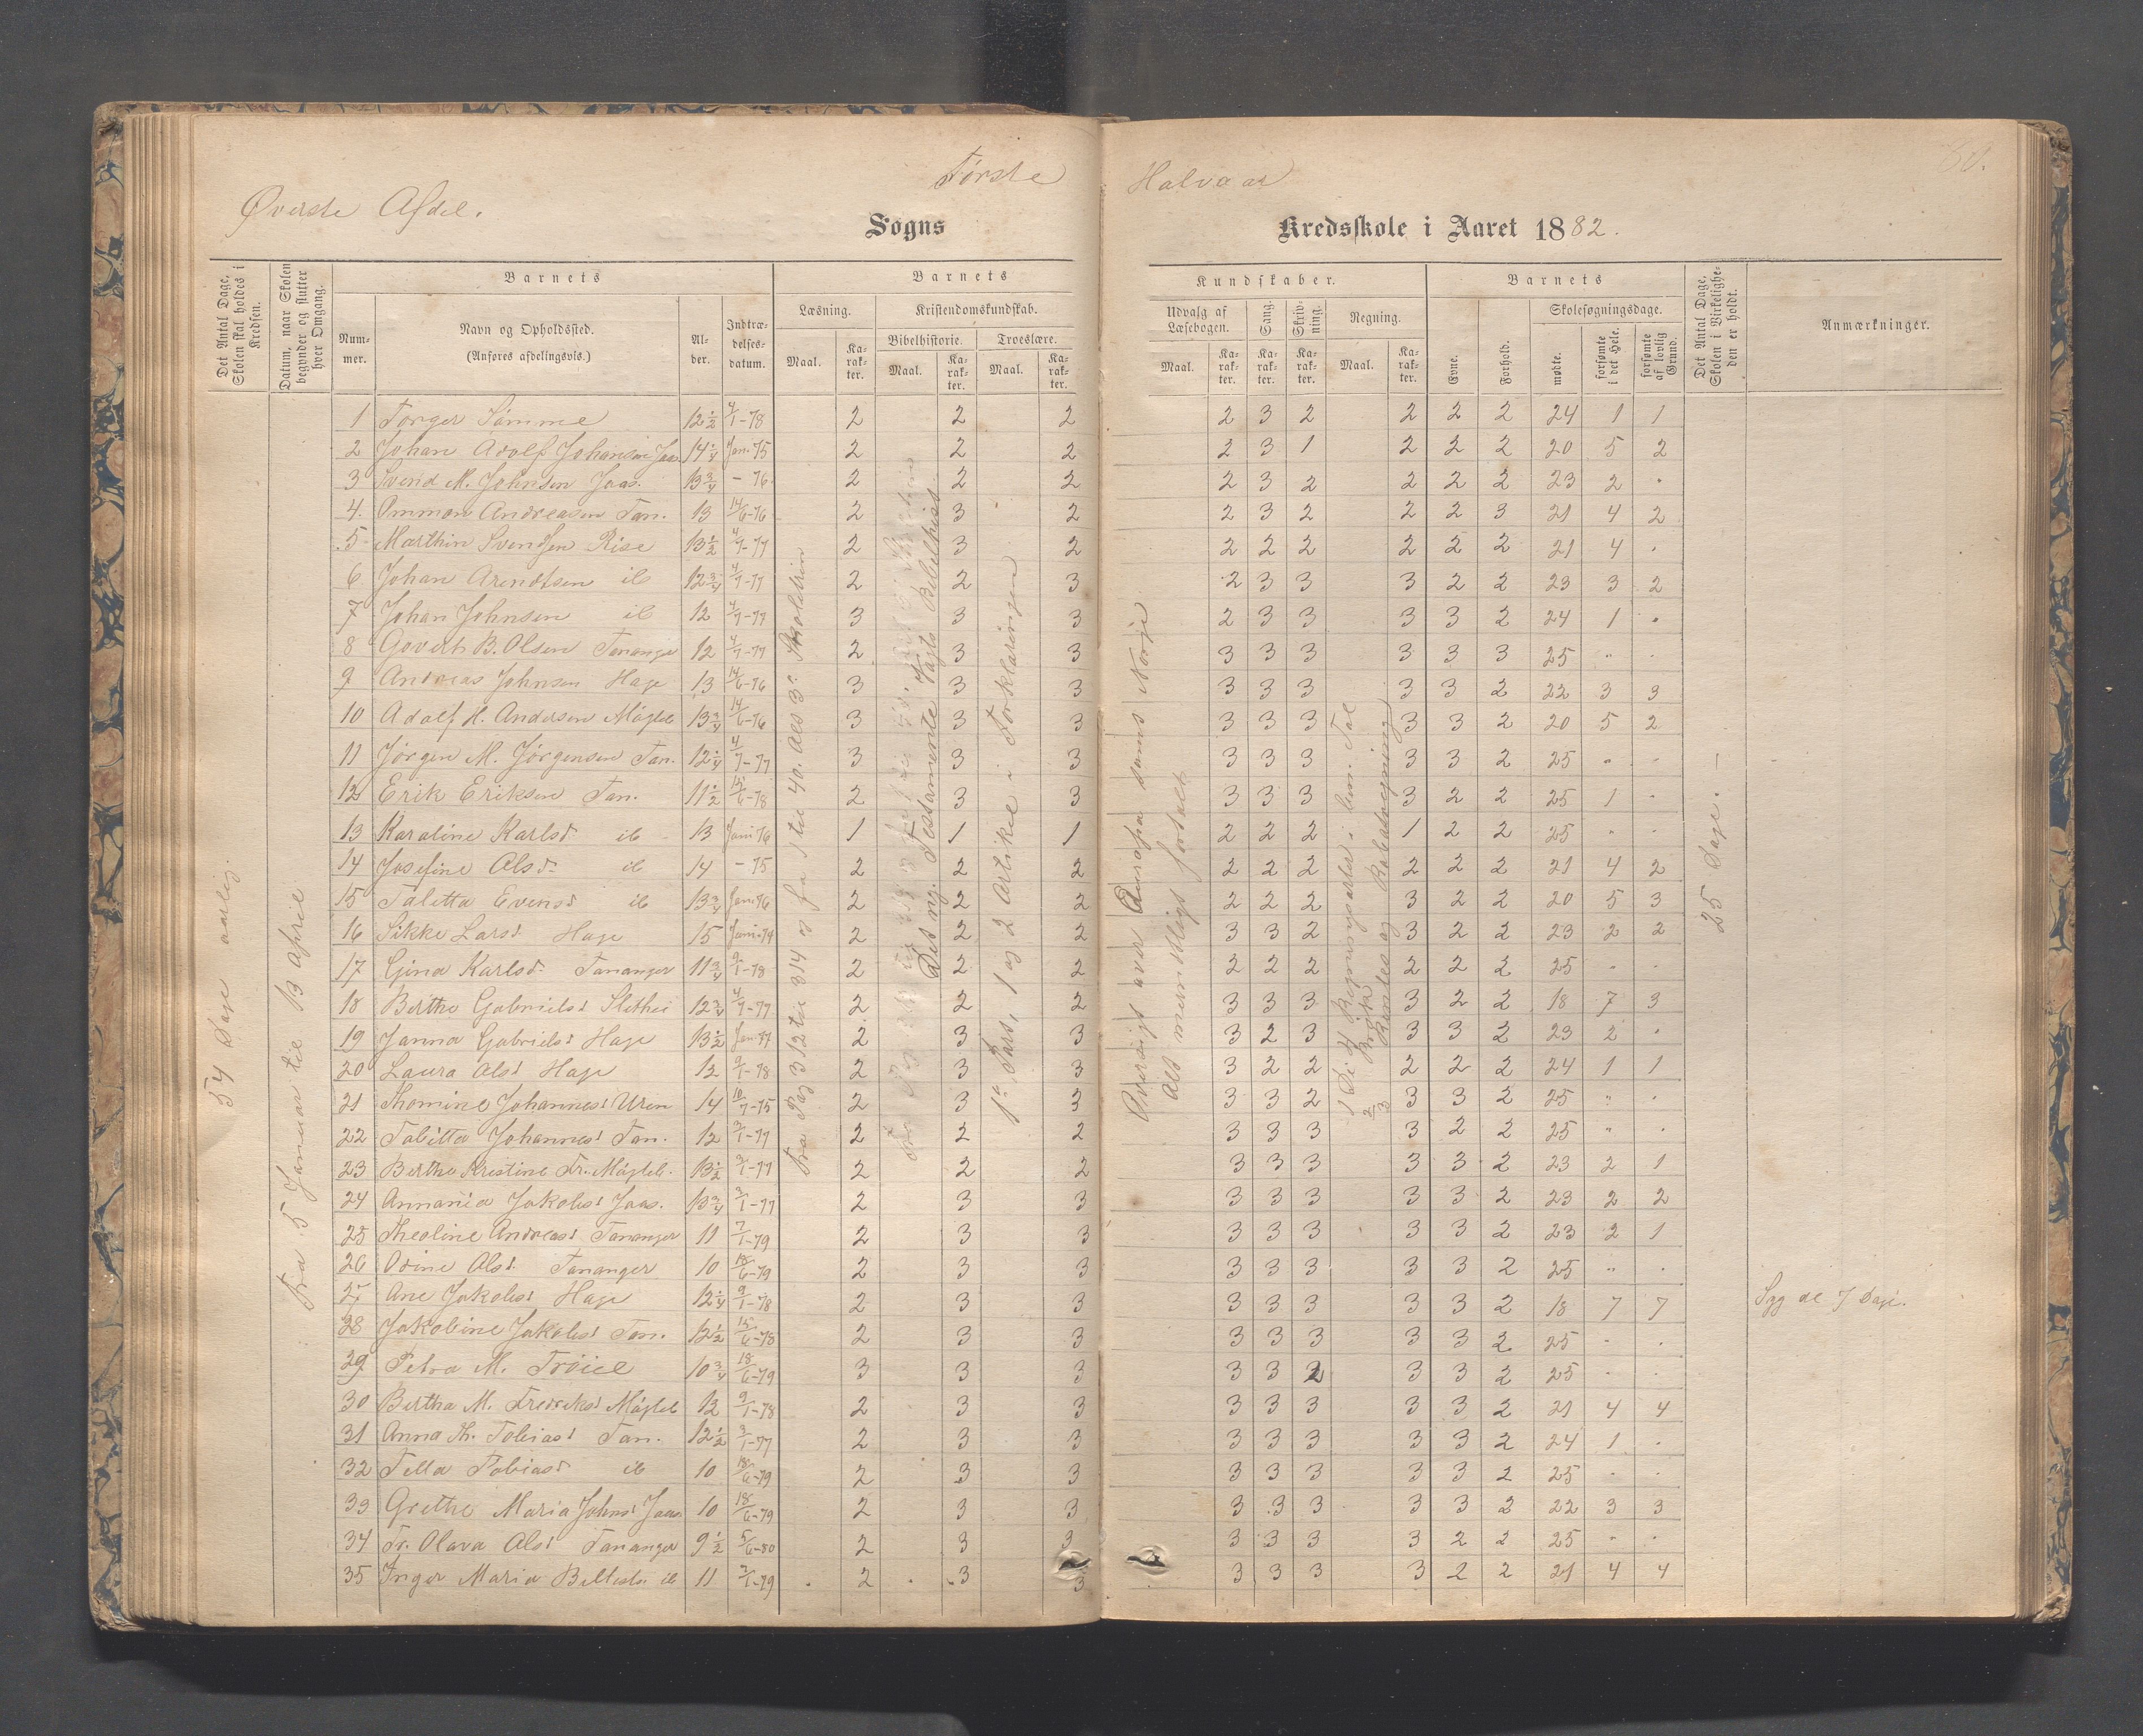 Øverste Afdel.
Første
Halvaar
Sogns
Kredsskole i Aaret 1882.
Det Antal Dage, Skolen skal holdes i Kredsen.
Datum, naar Skolen begynder og slutter hver Omgang.
Barnets
Nummer.
Navn og Opholdssted. (Anføres afdelingsvis.)
Alder.
Indtrædelses-datum.
Barnets
Læsning.
Maal.
Karakter.
Kristendomskundskab.
Bibelhistorie.
Maal.
Karakter.
Troeslære.
Maal.
Karakter.
Kundskaber.
Udvalg af Læsebogen.
Maal.
Karakter.
Sang.
Karakter.
Skrivning.
Karakter.
Regning.
Maal.
Karakter.
Barnets
Evne.
Forhold.
Skolesøgningsdage.
mødte.
forsømte i det Hele.
forsømte af lovlig Grund.
Det Antal Dage, Skolen i Virkeligheden er holdt.
Anmærkninger.
54 Dage aarlig.
Fra 5 Januar til 13 April
Fra Pag 312 til 314 og fra 1 til 40. Als 3die Skoletrin
Det ny. Testamente Vogts Bibelhist.
1ste Part, 1 og 2 Artikel i Forklaringen
Oversigt over Europa samt Norge
Alt mundtligt fortalt
1 De 4 Regningsarter i hele Tal
2 Brøk
3 Rentes og Rabatregning
25 Dage. —
1 Torger Sømme 12½ 4/1-78 2 2 2 2 3 2 2 2 2 24 1 1
2 Johan Adolf Johansen Jaas. 14¼ Jan. 75 2 2 2 2 3 1 2 2 2 20 5 2
3 Svend M. Johnsen Jaas. 13¾ - 76 2 2 2 2 3 2 2 2 2 23 2 .
4. Ommon Andreasen Tan. 13 14/6-76 2 3 2 2 3 2 2 2 3 21 4 2
5 Marthin Svendsen Risa 13½ 4/7-77 2 3 2 2 2 2 2 2 2 21 4 .
6 Johan Arendtsen ib 12¾ 4/7-77 2 2 3 2 3 3 3 2 2 23 3 2
7 Johan Johnsen ib 12 4/7-77 3 3 3 2 3 3 3 3 2 24 1 .
8 Govert B. Olsen Tananger 12 4/7-77 2 3 3 3 3 3 3 3 3 25 " .
9 Andreas Johnsen Haga 13 14/6-76 3 3 3 3 3 3 3 3 2 22 3 3
10 Adolf H. Andersen Møgleb 13¾ 14/6-76 3 3 3 3 3 3 3 3 2 20 5 2
11 Jørgen M. Jørgensen Tan. 12¼ 4/7-77 3 3 3 3 3 3 3 3 2 25 " .
12 Erik Eriksen Tan. 11½ 15/6-78 2 3 3 3 3 3 3 2 2 25 1 .
13 Karoline Karlsd. ib 13 Juni 76 1 1 1 2 2 2 1 2 2 25 " .
14 Josefine Olsd. ib 14 - 75 2 2 2 2 2 2 2 2 2 21 4 2
15 Talitta Evensd ib 13¾ Jan. 76 2 2 2 2 2 2 3 2 2 20 5 3
16 Sikke Larsd Haga 15 Juni-74 2 2 2 3 3 2 3 2 2 23 2 2
17 Gina Karlsd. Tananger 11¾ 9/1-78 2 2 2 2 2 2 2 2 2 25 " .
18 Berthe Gabrielsd Slethei 12¾ 4/7-77 2 2 2 3 3 3 3 2 2 18 7 3
19 Janna Gabrielsd Haga 13½ Jan. 77 2 3 3 3 2 3 3 3 2 23 2 .
20 Laura Olsd Haga 12 9/1-78 2 3 3 3 2 2 2 2 2 24 1 1
21 Thomine Johannesd Uren 14 10/7-75 2 3 3 3 3 2 3 3 2 25 " .
22 Tabitta Johannesd Tan. 12 3/1-77 2 2 2 3 3 3 3 2 2 25 " .
23 Bertha Kristine Fr. Møgleb. 13½ 3/1-77 2 2 2 3 3 3 3 3 2 23 2 1
24 Annania Jakobsd Jaas. 13¾ 3/1-77 2 3 3 3 3 3 3 3 2 23 2 2
25 Theoline Andreasd Tananger 11 7/1-79 2 3 3 3 3 3 3 3 2 23 2 1
26 Odine Olsd. Tananger 10 18/6-79 2 3 3 3 3 3 3 3 2 25 " .
27 Ane Jakobsd Haga 12¼ 9/1-78 2 3 3 3 3 3 3 3 2 18 7 7 Syg de 7 Dage.
28 Jakobine Jakobsd Tan. 12½ 15/6-78 2 3 3 3 3 3 3 3 2 25 . .
29 Petra M. Trøiel 10¾ 18/6-79 3 3 3 3 3 2 3 3 2 25 . .
30 Bertha M. Fredriksd Møgleb 12 9/1-78 2 3 3 3 3 3 3 3 2 21 4 4
31 Anna Th. Tobiasd Tan. 12½ 3/1-77 2 3 3 3 3 3 3 3 2 24 1 .
32 Tella Tobiasd ib 10 18/6-79 2 3 3 3 3 3 3 3 2 25 . .
33 Grethe Maria Johnsd Jaas. 10 18/6-79 2 3 3 3 3 3 3 3 2 22 3 3
34 Fr. Olava Olsd Tananger 9½ 5/6-80 2 3 3 3 3 3 3 2 2 25 . .
35 Inger Maria ib 11 7/1-79 2 3 3 3 3 3 3 2 2 21 4 4